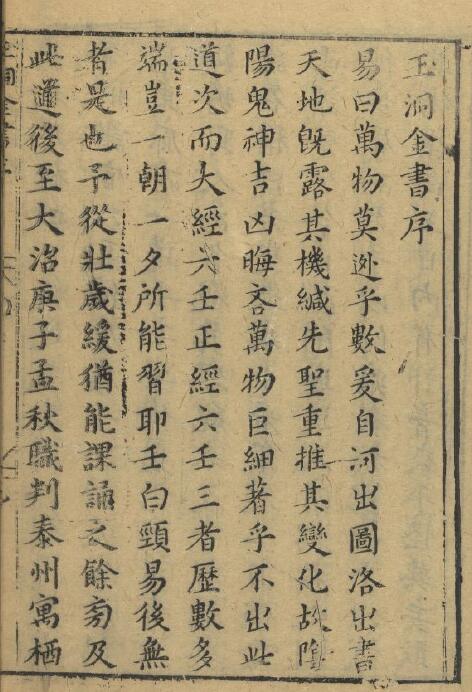 玉洞金書序
易曰萬物莫迯乎數爰自河出圖洛出書
天地旣露其機緘先聖重推其變化故隂
陽鬼神吉凶晦吝萬物巨細著乎不出此
道次而大經六壬正經六壬三者歷數多
端豈一朝一夕所能習耶壬白頸易後無
者是也予從壯歲緩猶能課誦之餘旁及
此邇後至大沿庚子孟秋職判泰州寓栖